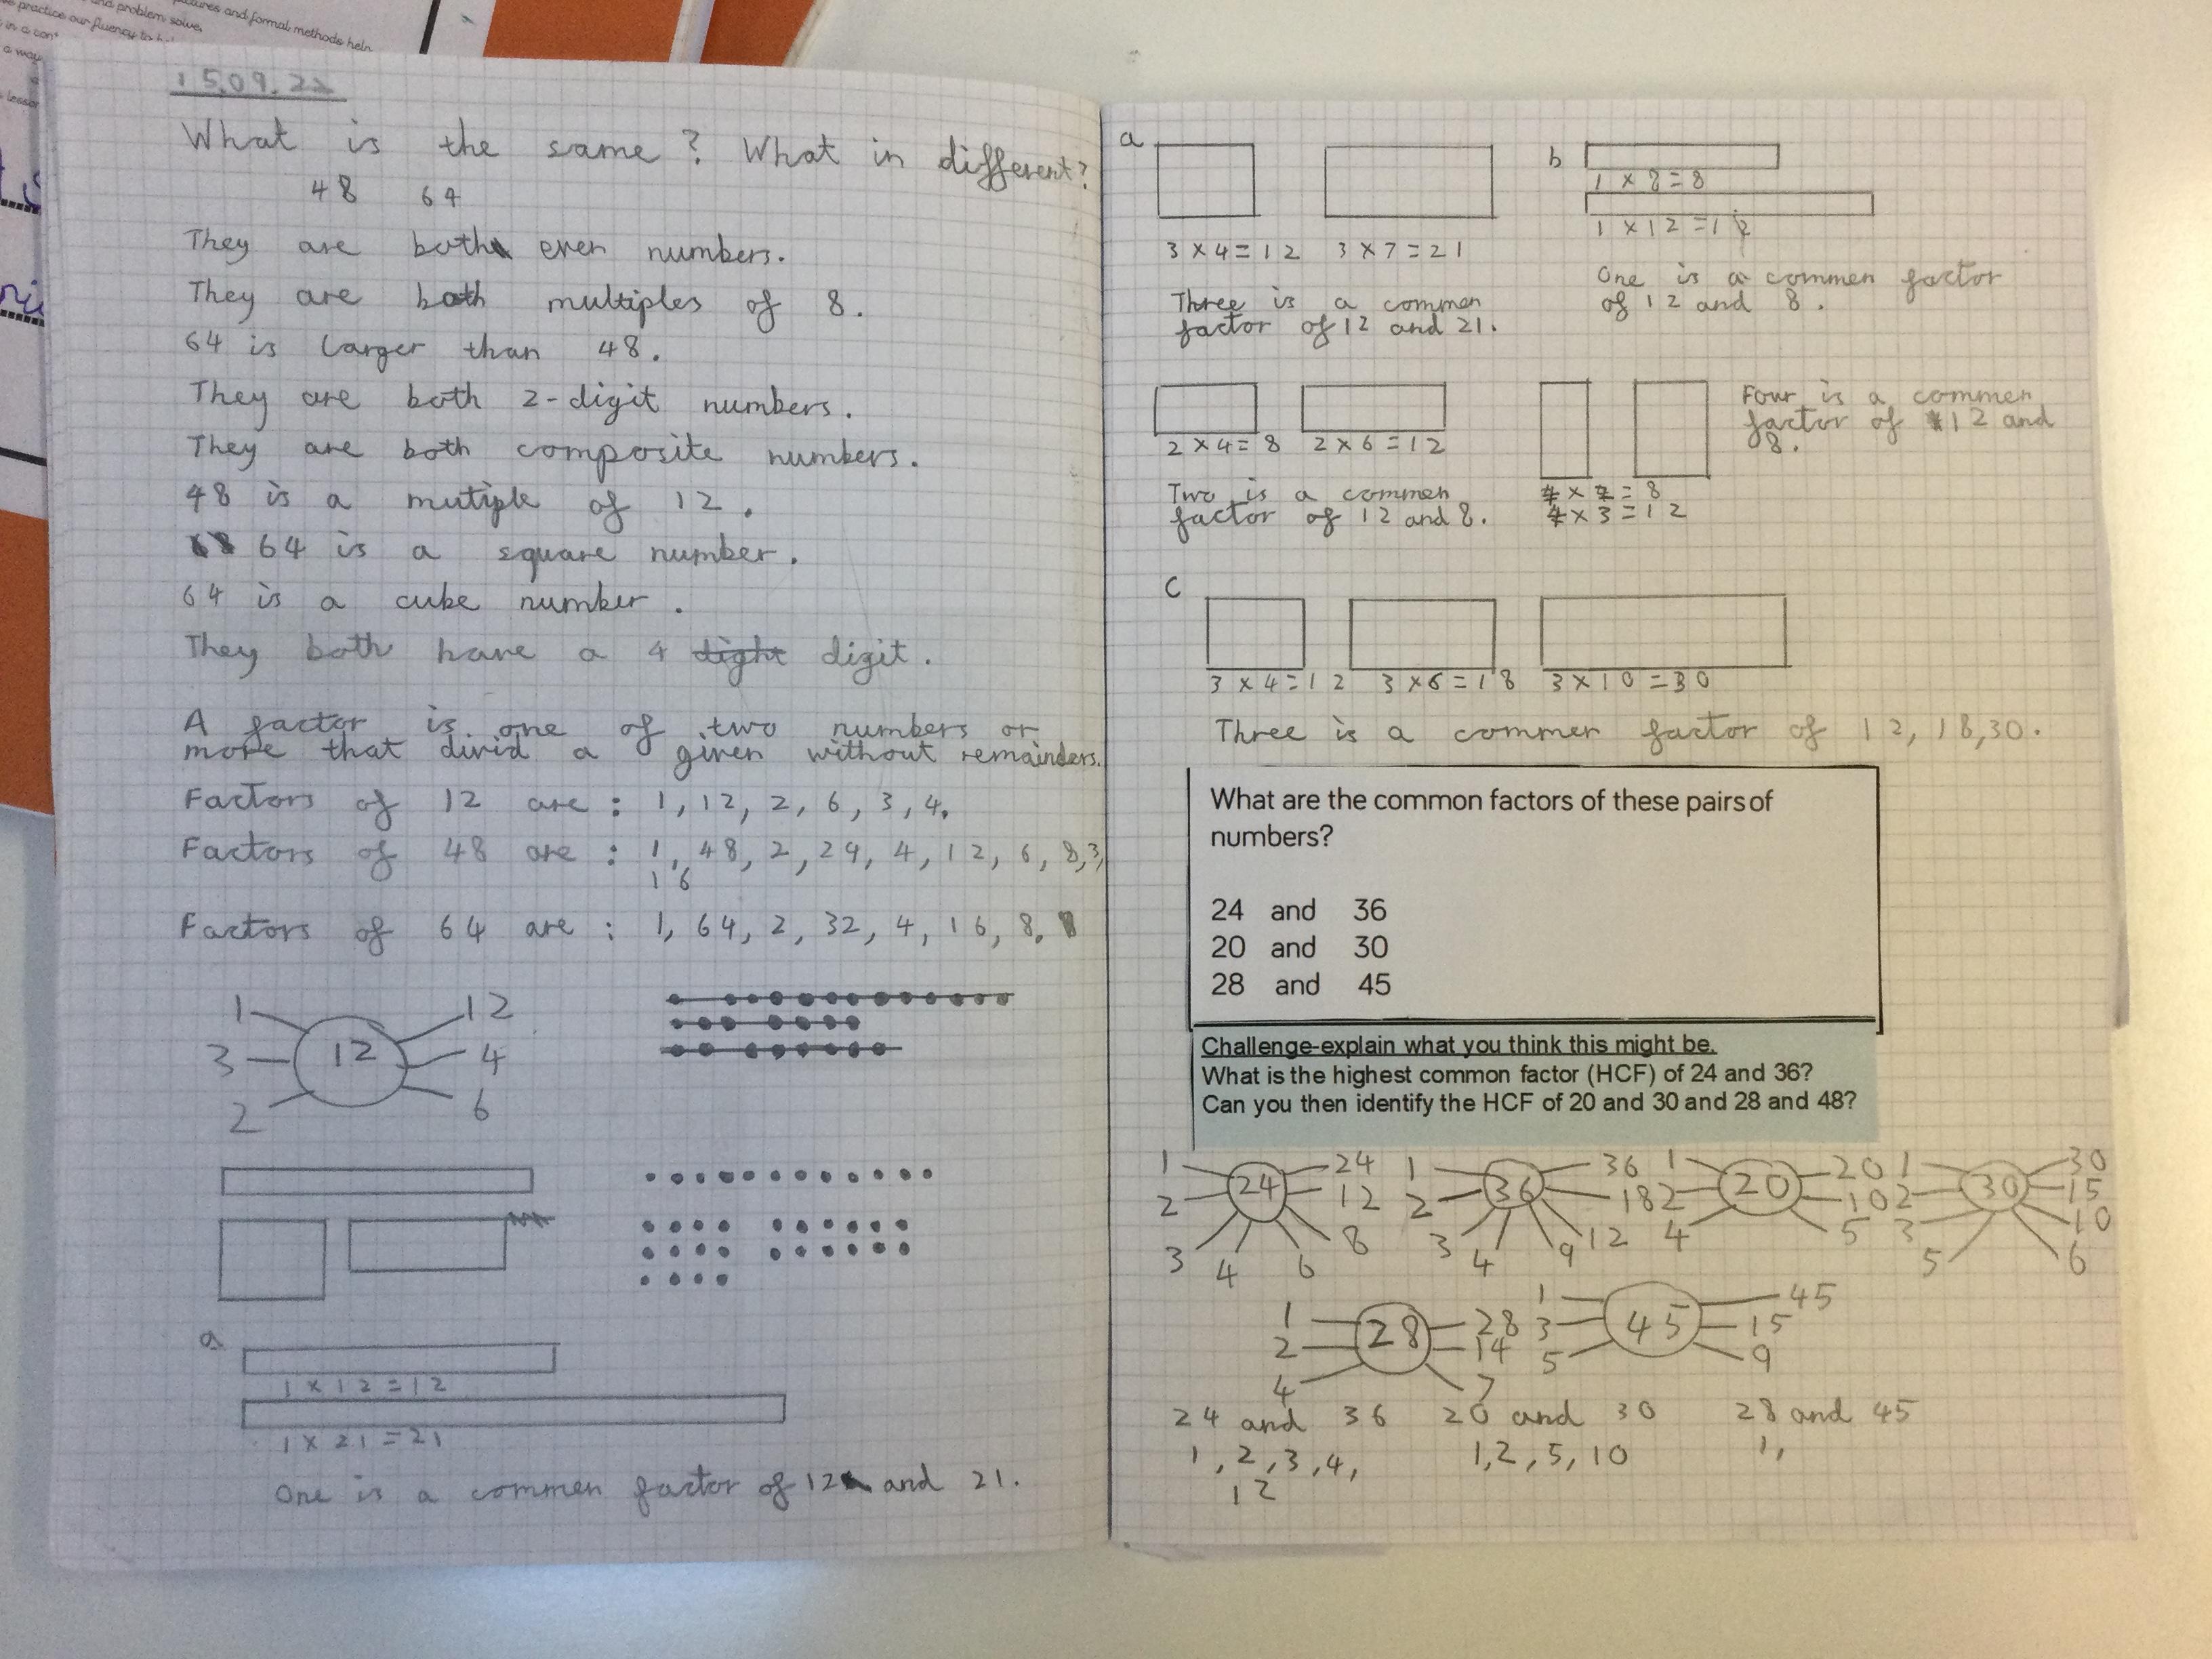 ctures and formal methods help
and problem solve.
practice our fluency to
in a con
a way
lesson
15.09.22
What is the same? What in different?
48 64
They are both even numbers.
They are both multiples of 8.
64 is larger than 48.
They are both 2-digit numbers.
They are both composite numbers.
48 is a mutiple of 12.
64 is a square number.
64 is a cube number.
They both have a 4 dight digit.
A factor is one of two numbers or
more that divid a given without remainders.
Factors of 12 are : 1, 12, 2, 6, 3, 4.
Factors of 48 are : 1, 48, 2, 24, 4, 12, 6, 8, 3,
16
Factors of 64 are : 1, 64, 2, 32, 4, 16, 8.
1 12
3 12 4
2 6
a
1 x 12 = 12
1 x 21 = 21
One is a commen factor of 12 and 21.
a
3 x 4 = 12 3 x 7 = 21
Three is a commen
factor of 12 and 21.
b
1 x 8 = 8
1 x 12 = 12
One is a commen factor
of 12 and 8.
2 x 4 = 8 2 x 6 = 12
Two is a commen
factor of 12 and 8.
4 x 2 = 8
4 x 3 = 12
Four is a commen
factor of 12 and
8.
c
3 x 4 = 12 3 x 6 = 18 3 x 10 = 30
Three is a commen factor of 12, 18, 30.
What are the common factors of these pairs of
numbers?
24 and 36
20 and 30
28 and 45
Challenge-explain what you think this might be.
What is the highest common factor (HCF) of 24 and 36?
Can you then identify the HCF of 20 and 30 and 28 and 48?
1 24 1 36 1 20 1 30
2 24 12 2 36 18 2 20 10 2 30 15
3 4 6 8 3 4 9 12 4 5 3 5 6 10
1 28 1 45
2 28 14 3 45 15
4 7 5 9
24 and 36 20 and 30 28 and 45
1, 2, 3, 4, 1, 2, 5, 10 1,
12